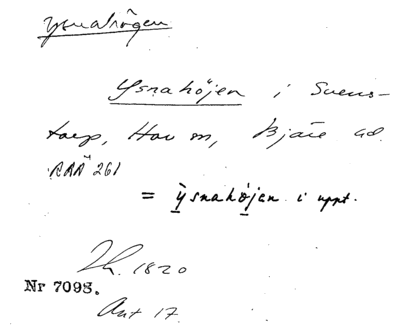 ysnahögen
Ysnahöjen i Svens-
torp, Hov sn, Bjäre hd.
RAÄ 261
= ỳsnahöjen i uppt.
Th. 1820
Nr 7098.
Ant 17.